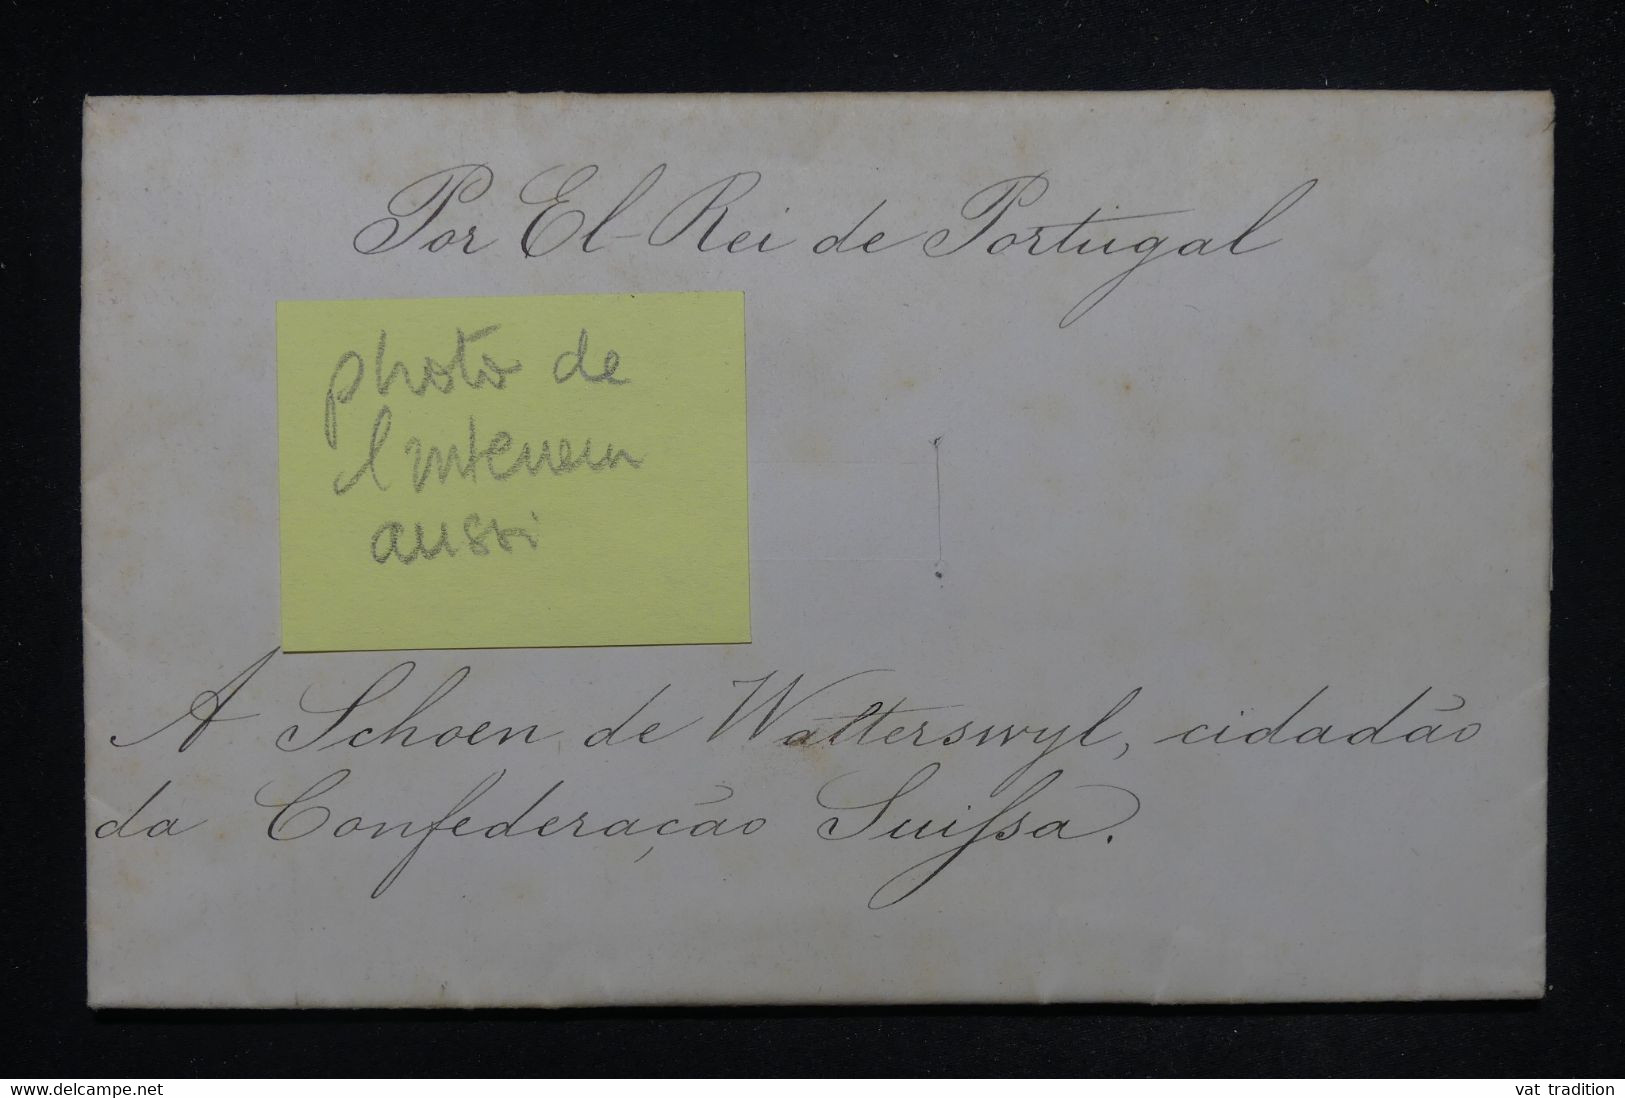 Por El-Rei de Portugal
photo de
l'intérieur
aussi
A Schoen de Watterswyl, cidadão
da Confederação Suissa.
www.delcampe.net
vat tradition